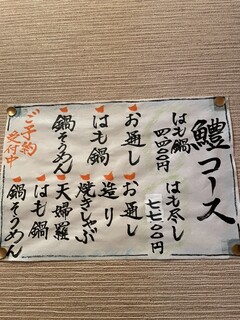 鱧コース
はも鍋 四、四〇〇円
お通し
はも鍋
鍋そうめん
はも尽し 七七〇〇円
お通し
造り
焼きしゃぶ
天婦羅
はも鍋
鍋そうめん
ご予約
受付中